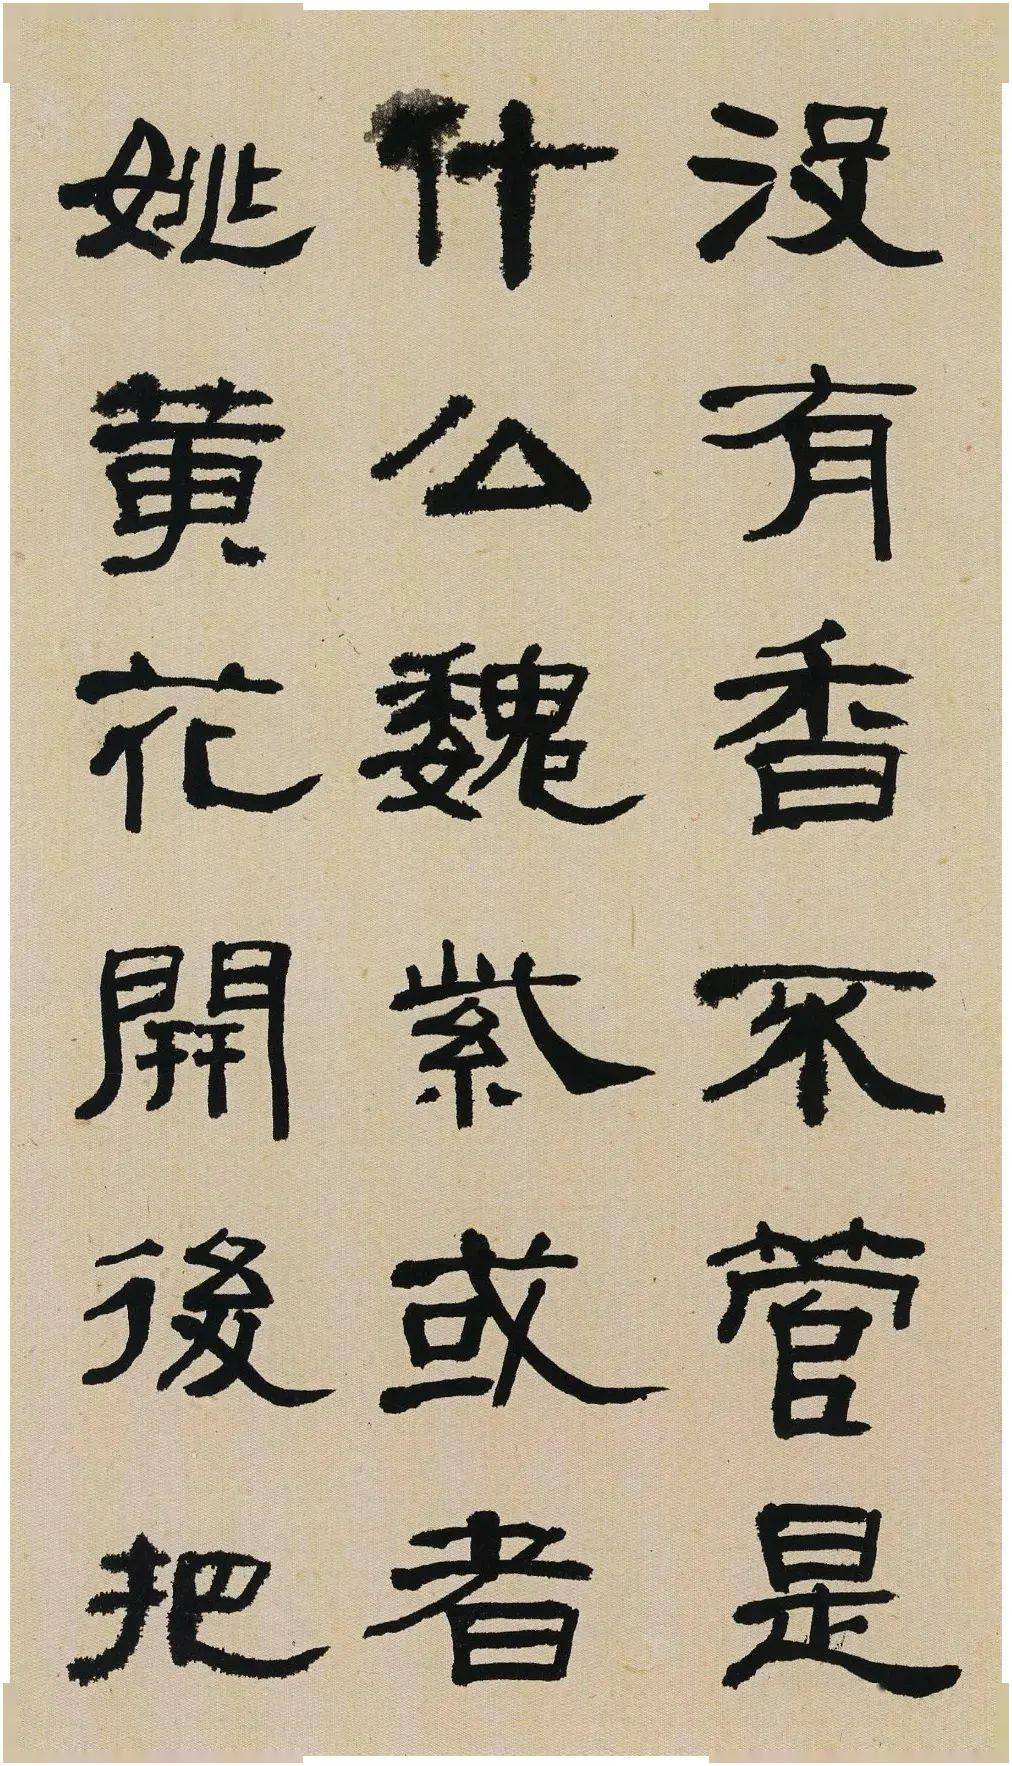 没有香不管是
什么魏紫或者
姚黄花開後把